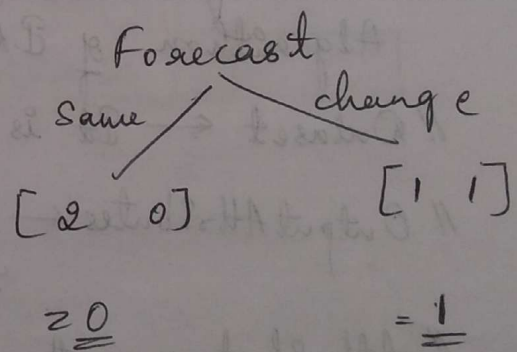 Forecast
Same change
[2 0] [1 1]
= 0 = 1